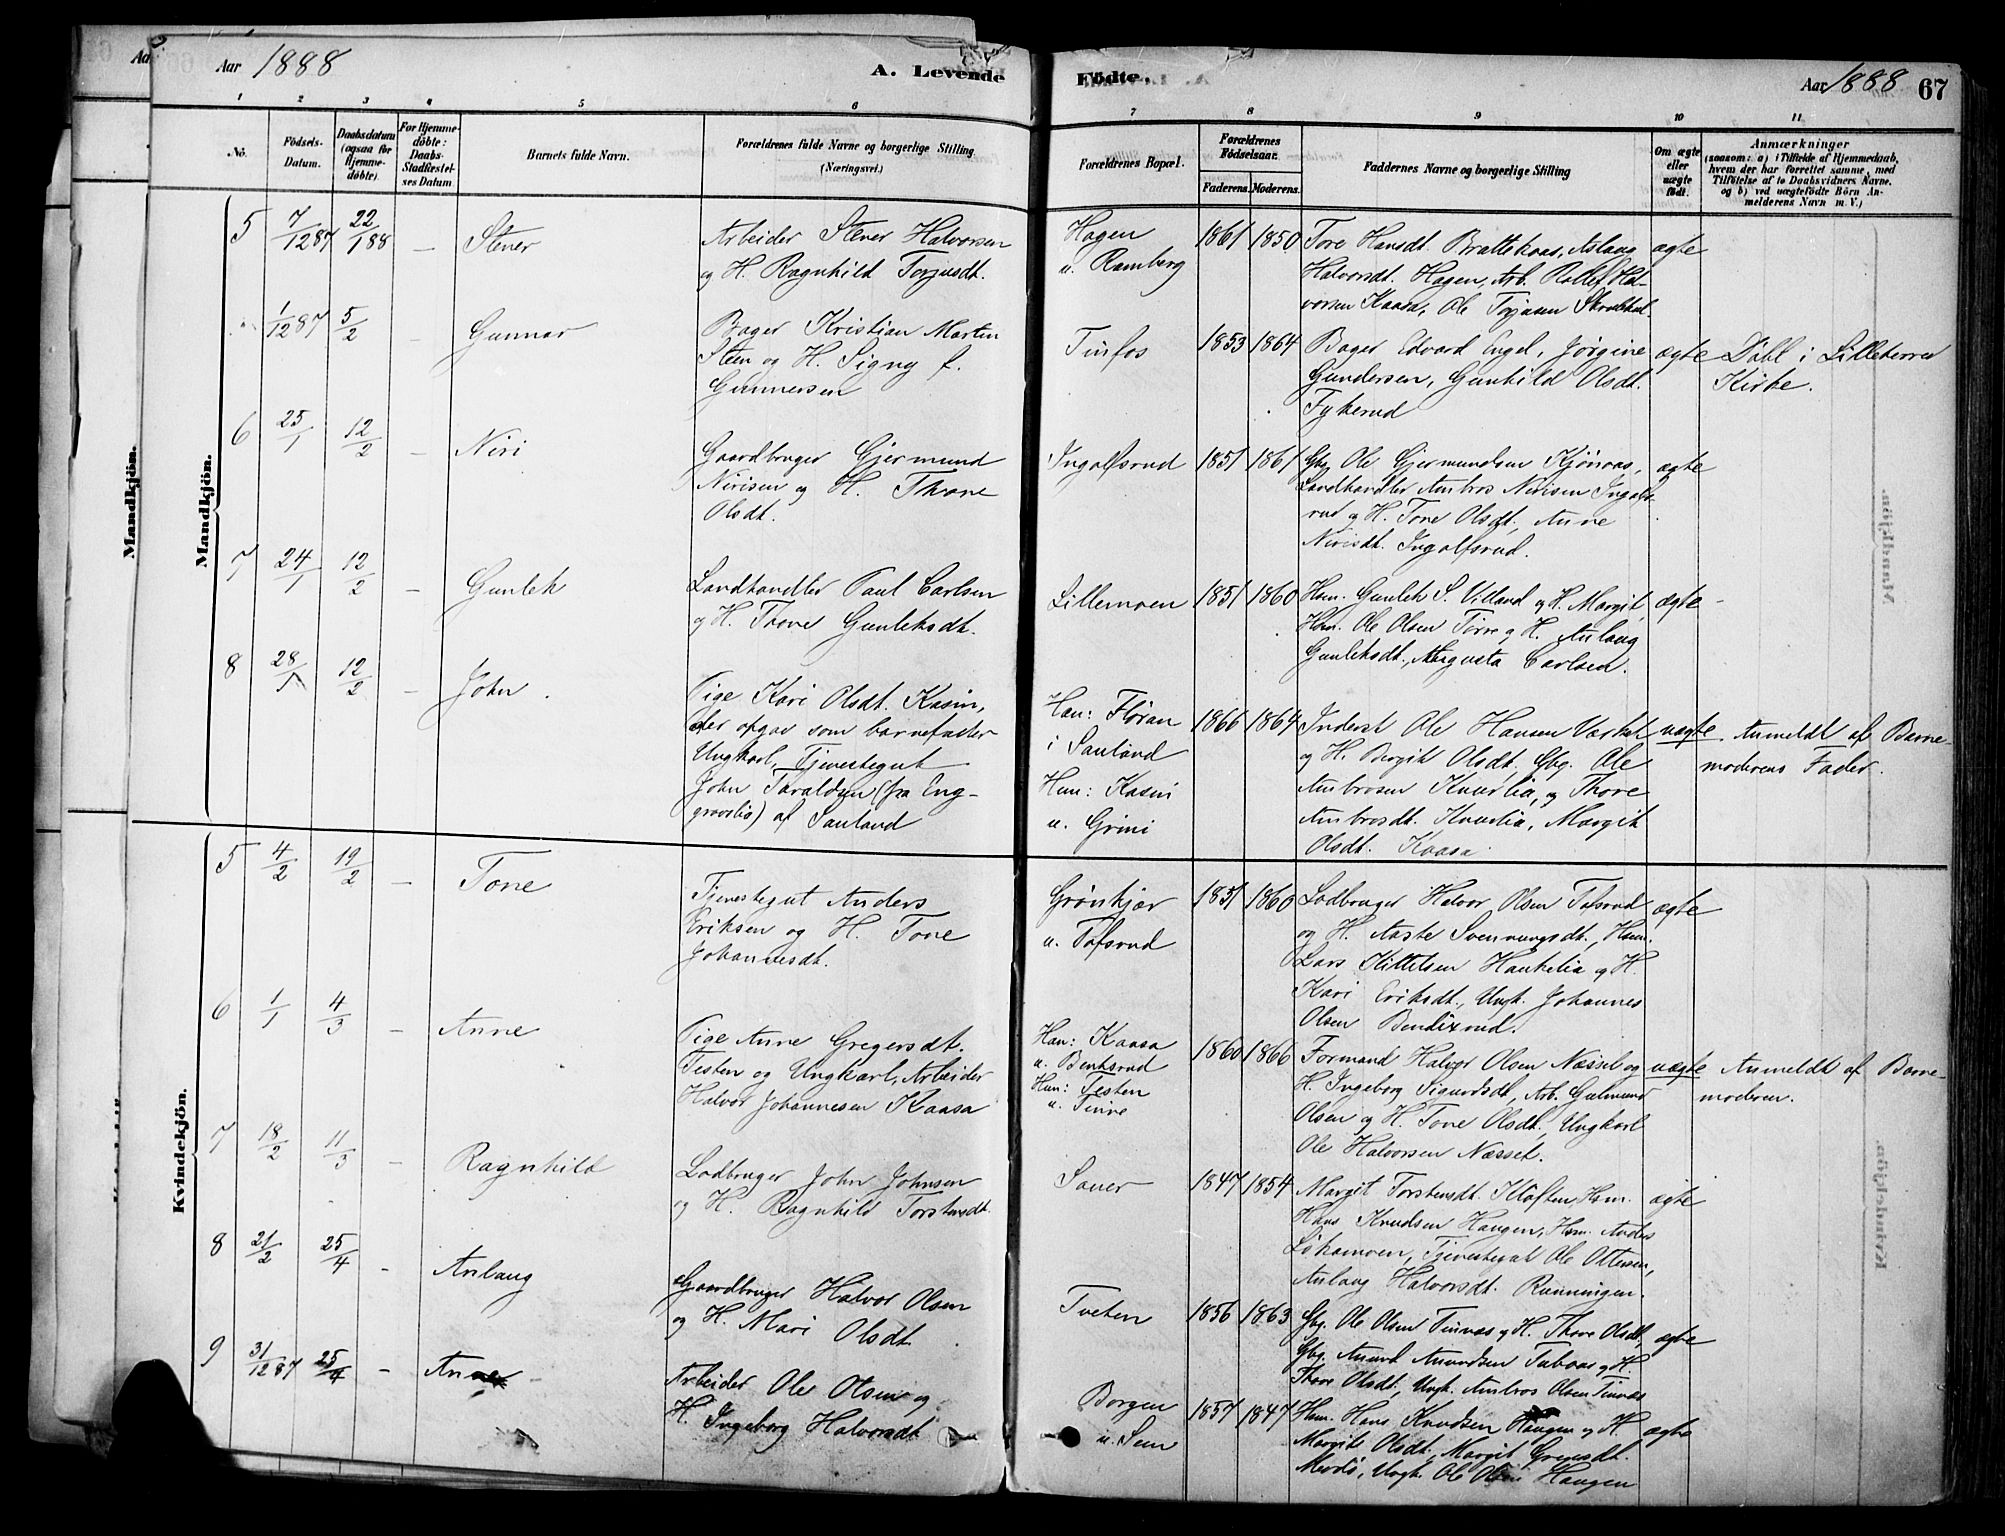 Aar 1888
A. Levende
Födte.
Aar 1888
67
1 2 3 4 5 6
7 8 9 10 11
No.
Födsels-
Datum.
Daabsdatum
(ogsaa for
Hjemme-
döbte).
For Hjemme-
döbte:
Daabs-
Stadfæstel-
ses Datum
Barnets fulde Navn.
Forældrenes fulde Navne og borgerlige Stilling
(Næringsvei.)
Forældrenes Bopæl.
Forældrenes
Födselsaar.
Faderens. Moderens.
Faddernes Navne og borgerlige Stilling
Om ægte
eller
uægte
födt.
Anmærkninger
(saasom: a) i Tilfælde af Hjemmedaab,
hvem der har forrettet samme, med
Tilföielse af to Daabsvidners Navne,
og b) ved uægtefödte Börn An-
melderens Navn m. V.)
Mandkjön.
Mandkjön.
5 7/12 87 22/1 88 – Stener
Arbeider Stener Halvorsen
og H. Ragnhild Torjusdt.
Hagen
u. Ramberg
1861 1850
Tore Hansdt. Brattekaas, Aslaug
Halvorsdt. Hagen, Arb. Rollef Hal-
vorsen Kaasa, Ole Torjusen
ægte
1/12 87 5/2 Gunnar
Bager Kristian Martin
Steen og H. Signy f.
Gunnersen
Tinfos
1853 1864
Bager Edvard Engel, Jørgine
Gundersen, Gunhild Olsdt.
Fykerud
ægte
Döbt i Lilleherred
Kirke.
6 25/1 12/2 – Niri
Gaardbruger Gjermund
Nirisen og H. Thone
Olsdt.
Ingolfsrud
1851 1861
Gbg. Ole Gjermundsen Kjönaas,
Landhandler Ambros Nirisen Ingolfs-
rud og H. Tone Olsdt., Anne
Nirisdt. Ingolfsrud.
ægte
7 24/1 12/2 – Gunlek
Landhandler Paul Carlsen
og H. Thone Gunleksdt.
Lillemoen
1851 1860
Hsm. Gunlek S. Villand og H. Margit,
Hsm. Ole Olsen Törre og H. Aslaug
Gunleksdt., Augusta Carlsen.
ægte
8 28/1 12/2 – John.
Pige Kari Olsdt. Kasin,
der opgav som barnefader
Ungkarl, Tjenestegut
John Taraldsen (fra Eng-
gravslia) af Sauland
Han: Flöran
i Sauland
Hun: Kasin
u. Grini
1866 1864
Inderst Ole Hansen Værket
og H. Bergit Olsdt. Gbg. Ole
Ambrosen Knurlia, og Thone
Ambrosdt. Knurlia, Margit
Olsdt. Kaasa
uægte.
Anmeldt af Barne-
moderens Fader.
Kvindekjön.
5 4/2 19/2 – Tone
Tjenestegut Anders
Eriksen og H. Tone
Johannesdt.
Grönkjær
u. Tofsrud
1851 1860
Lodbruger Halvor Olsen Tofsrud
og H. Aaste Svennungsdt., Hsm.
Lars Kittelsen Haukelia og H.
Kari Eriksdt., Ungk. Johannes
Olsen Bendixrud.
ægte
6 1/1 4/3 – Anne
Pige Anne Gregersdt.
Testen og Ungkarl, Arbeider
Halvor Johannesen Kaasa
Han: Kaasa
u. Bentsrud
Hun: Testen
u. Tinne
1860 1866
Formand Halvor Olsen Næsset og
H. Ingeborg Sigurdsdt., Arb. Gulmund
Olsen og H. Tone Olsdt., Ungkarl
Ole Halvorsen Næsset.
uægte
Anmeldt af Barne-
moderen.
7 18/2 11/3 – Ragnhild
Lodbruger John Johnsen
og H. Ragnhild Torstensdt.
Sauer
1847 1854
Margit Torstensdt. Kloften, Hsm.
Hans Knudsen Haugen, Hsm. Anders
Lökamoen, Tjenestegut Ole Ottersen,
Aslaug Halvorsdt. Runningen.
ægte
8 21/2 25/4 – Aslaug
Gaardbruger Halvor Olsen
og H. Mari Olsdt.
Tveten
1856 1863
Gbg. Ole Olsen Tinnæs og H. Thone Olsdt,
Gbg. Amund Amundsen Tuboas og H.
Thone Olsdt., Ungk. Ambros Olsen Tinnæs
ægte
9 31/12 87 25/4 – Anne
Arbeider Ole Olsen og
H. Ingeborg Halvorsdt
Borgen
u. Sem
1857 1847
Hsm. Hans Knudsen Haugen og H
Margit Olsdt., Margit Gregersdt.
Ungk. Ole Olsen Haugen
ægte